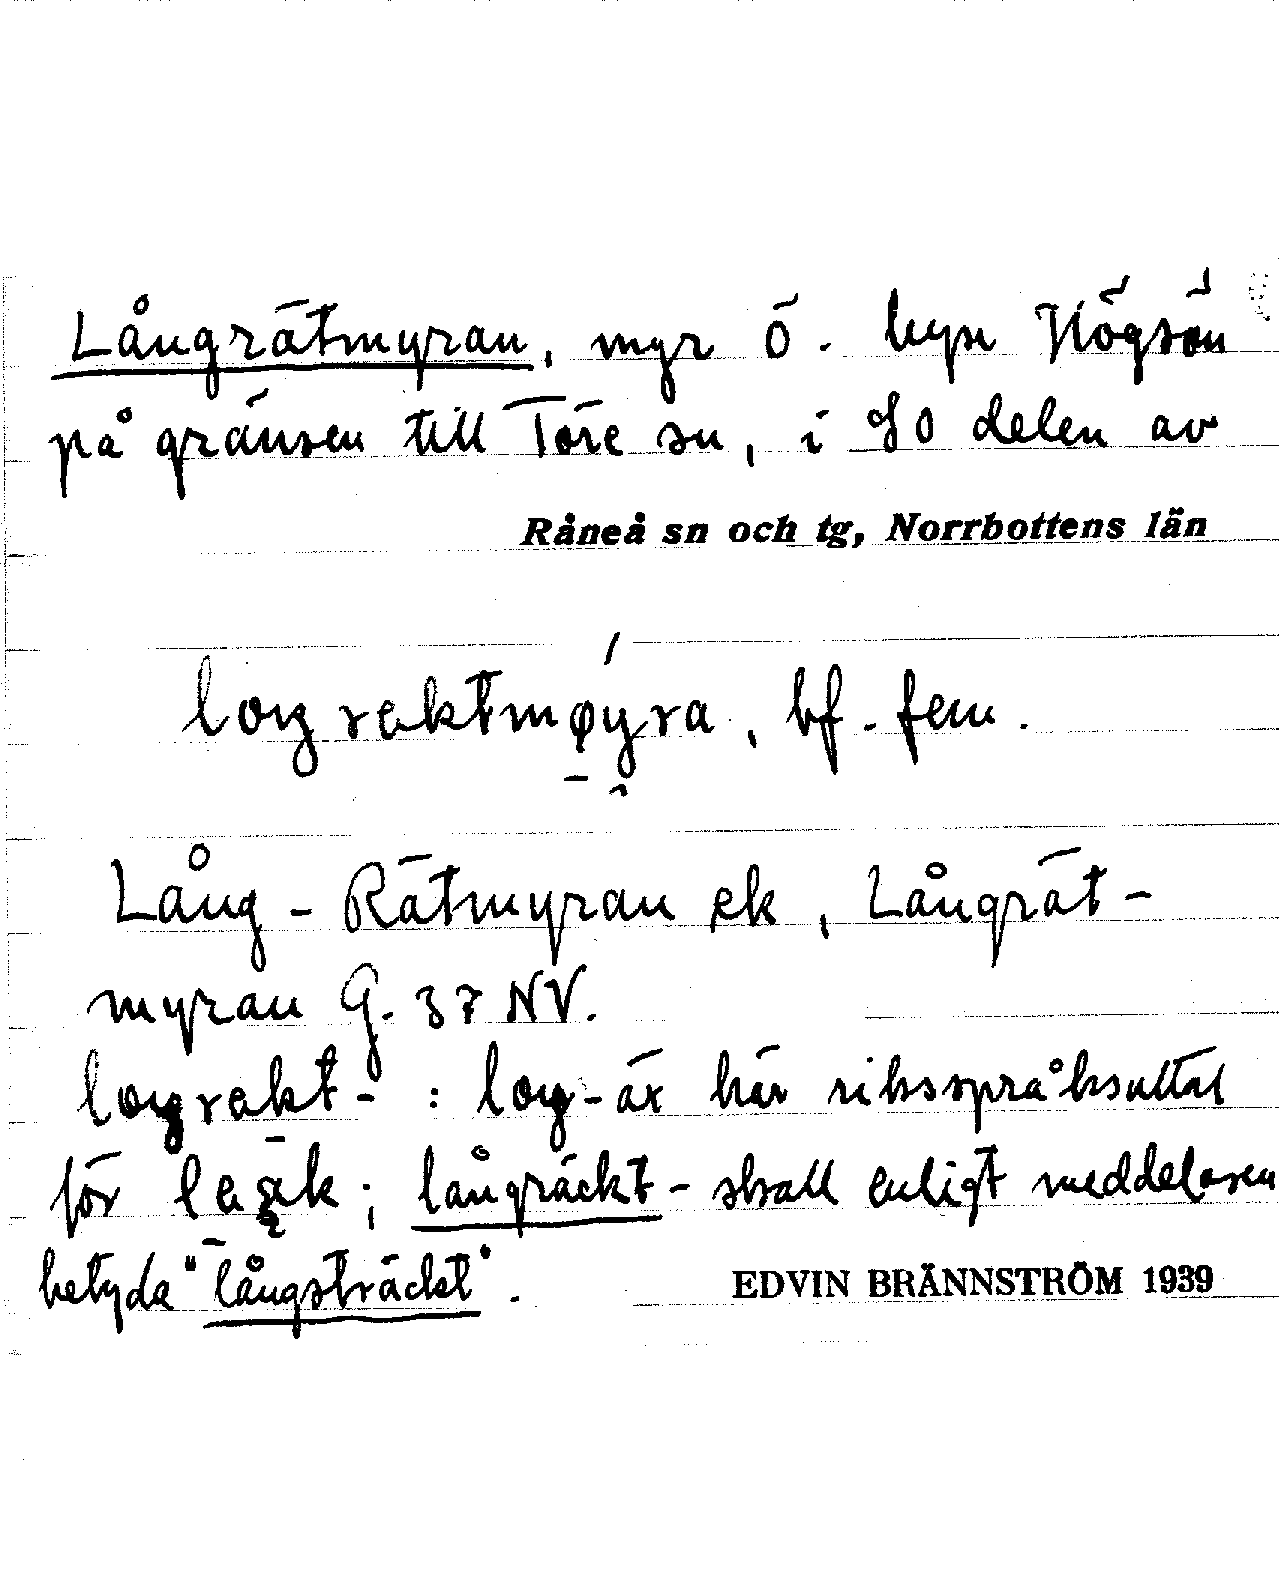 Långrätmyran, myr Ö. byn Högsön
på gränsen till Töre sn, i SO delen av
Råneå sn och tg, Norrbottens län
bf. fem.
Lång-Rätmyran ek, Långrät-
myran G. 37 NV.
är här riksspråksuttal
för långräckt- skall enligt meddelaren
betyda "långsträckt".
EDVIN BRÄNNSTRÖM 1939